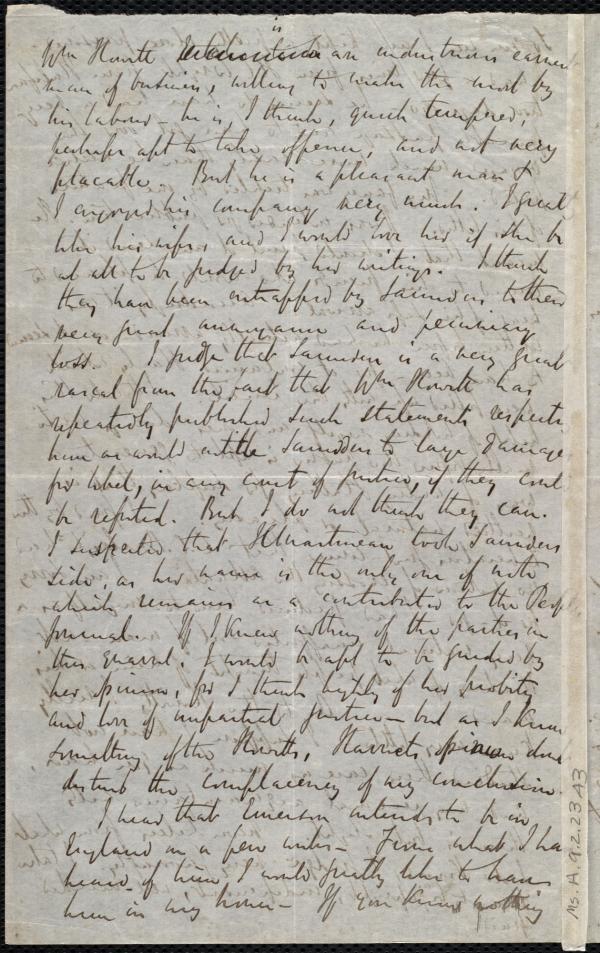 is
Wm Howitt an industrious earnest
man of business, willing to make the most by
his labour - he is, I think, quick tempered,
perhaps apt to take offence, and not very
placable. But he is a pleasant man &
I enjoyed his company very much. I great
like his wife, and I would love her if she be
at all to be judged by her writings. I think
they have been entrapped by Saunders to their
very great annoyance and pecuniary
loss. I judge that Saunders is a very great
rascal from the fact that Wm Howitt has
repeatedly published such statements respecti
him as would entitle Saunders to large damage
for libel, in any court of justice, if they coul
be refuted. But I do not think they can.
I suspected that H Martineau took Saunders
side, as her name is the only one of note
which remains as a contributor to the Peop
Journal. If I knew nothing of the parties in
this quarrel, I would be apt to be guided by
her opinion, for I think highly of her probity
and love of impartial justice - but as I know
something of the Howitts, Harriets opinion don
disturb the complacency of my conclusion.
I hear that Emerson intends to be in
England in a few weeks - From what I ha
heard of him I would greatly like to have
him in my house - If you knew nothing
Ms. A. 9. 2. 23 A3